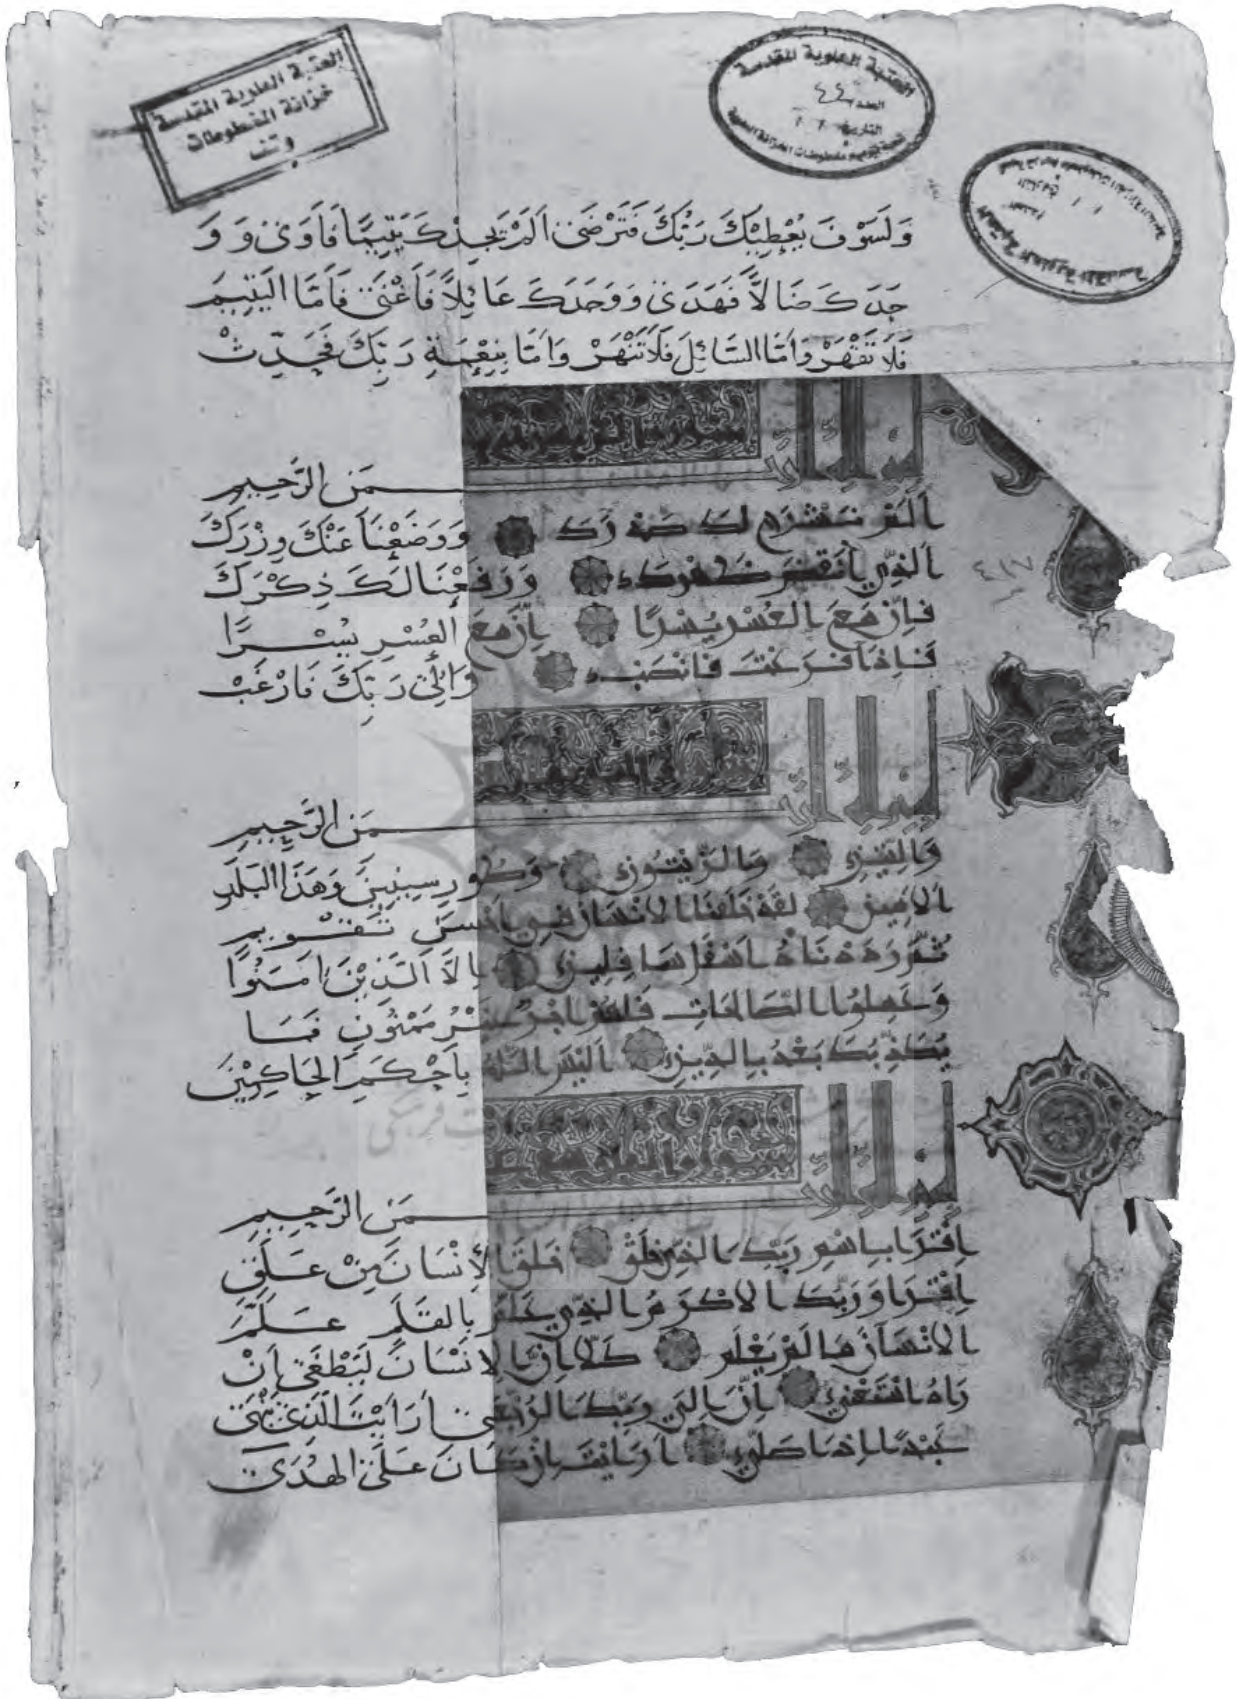 العتبة العلوية المقدسة
خزانة المخطوطات
وقف
العتبة العلوية المقدسة
العدد ٤٤
التاريخ
العتبة العلوية المقدسة
وَلَسَوْفَ يُعْطِيْكَ رَبُّكَ فَتَرْضَى اَلَمْ يَجِدْكَ يَتِيمًا فَاَوَى وَ وَ
جَدَكَ ضَالاًّ فَهَدَى وَوَجَدَكَ عَائِلاً فَاَغْنَى فَاَمَّا الْيَتِيمَ
فَلاَ تَقْهَرْ وَاَمَّا السَّائِلَ فَلاَ تَنْهَرْ وَاَمَّا بِنِعْمَةِ رَبِّكَ فَحَدِّثْ
بسم الله الرحمَن الرَّحِيمِ
اَلَمْ نَشْرَحْ لَكَ صَدْرَكَ وَوَضَعْنَا عَنْكَ وِزْرَكَ
اَلَّذِي اَنْقَضَ ظَهْرَكَ وَرَفَعْنَا لَكَ ذِكْرَكَ
فَاِنَّ مَعَ الْعُسْرِ يُسْرًا اِنَّ مَعَ الْعُسْرِ يُسْرًا
فَاِذَا فَرَغْتَ فَانْصَبْ وَاِلَى رَبِّكَ فَارْغَبْ
بسم الله الرحمَن الرَّحِيمِ
وَالتِّينِ وَالزَّيْتُونِ وَطُورِ سِينِينَ وَهَذَا الْبَلَدِ
الاَمِينِ لَقَدْ خَلَقْنَا الاِنْسَانَ فِي اَحْسَنِ تَقْوِيمٍ
ثُمَّ رَدَدْنَاهُ اَسْفَلَ سَافِلِينَ اِلاَّ الَّذِينَ اَمَنُوا
وَعَمِلُوا الصَّالِحَاتِ فَلَهُمْ اَجْرٌ غَيْرُ مَمْنُونٍ فَمَا
يُكَذِّبُكَ بَعْدُ بِالدِّينِ اَلَيْسَ اللهُ بِاَحْكَمِ الْحَاكِمِيْنَ
بسم الله الرحمَن الرَّحِيمِ
اِقْرَا بِاسْمِ رَبِّكَ الَّذِي خَلَقَ خَلَقَ الْاِنْسَانَ مِنْ عَلَقٍ
اِقْرَا وَرَبُّكَ الاَكْرَمُ الَّذِي عَلَّمَ بِالْقَلَمِ عَلَّمَ
الاِنْسَانَ مَا لَمْ يَعْلَمْ كَلاَّ اِنَّ الاِنْسَانَ لَيَطْغَى اَنْ
رَاهُ اسْتَغْنَى اِنَّ اِلَى رَبِّكَ الرُّجْعَى اَرَاَيْتَ الَّذِي يَنْهَى
عَبْدًا اِذَا صَلَّى اَرَاَيْتَ اِنْ كَانَ عَلَى الْهُدَى